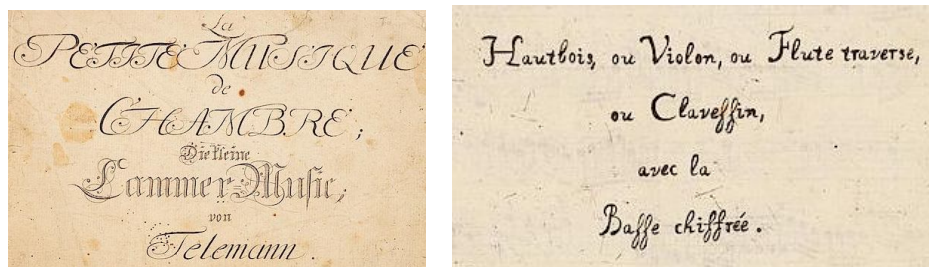 La
PETITE MUSIQUE
de
CHAMBRE;
Die kleine
Cammer-Music,
von
Telemann.
Hautbois, ou Violon, ou Flute traverse,
ou Claveſſin,
avec la
Baſſe chiffrée.